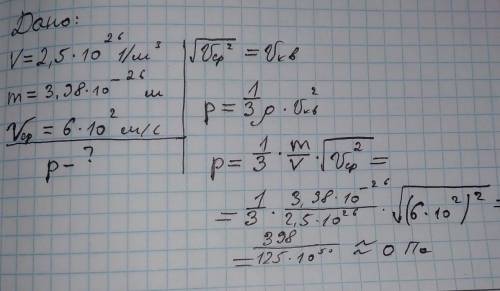 Дано:
V = 2,5 · 10²⁶ 1/м³
m = 3,98 · 10⁻²⁶ м
Vср = 6 · 10² м/с
p - ?
√Vср² = Vкв
p = 1/3 ρ · Vкв²
p = 1/3 · m/V · √Vср² =
= 1/3 · 3,98 · 10⁻²⁶ / 2,5 · 10²⁶ · √(6 · 10²)² =
= 398 / 125 · 10⁵⁰ ≈ 0 Па